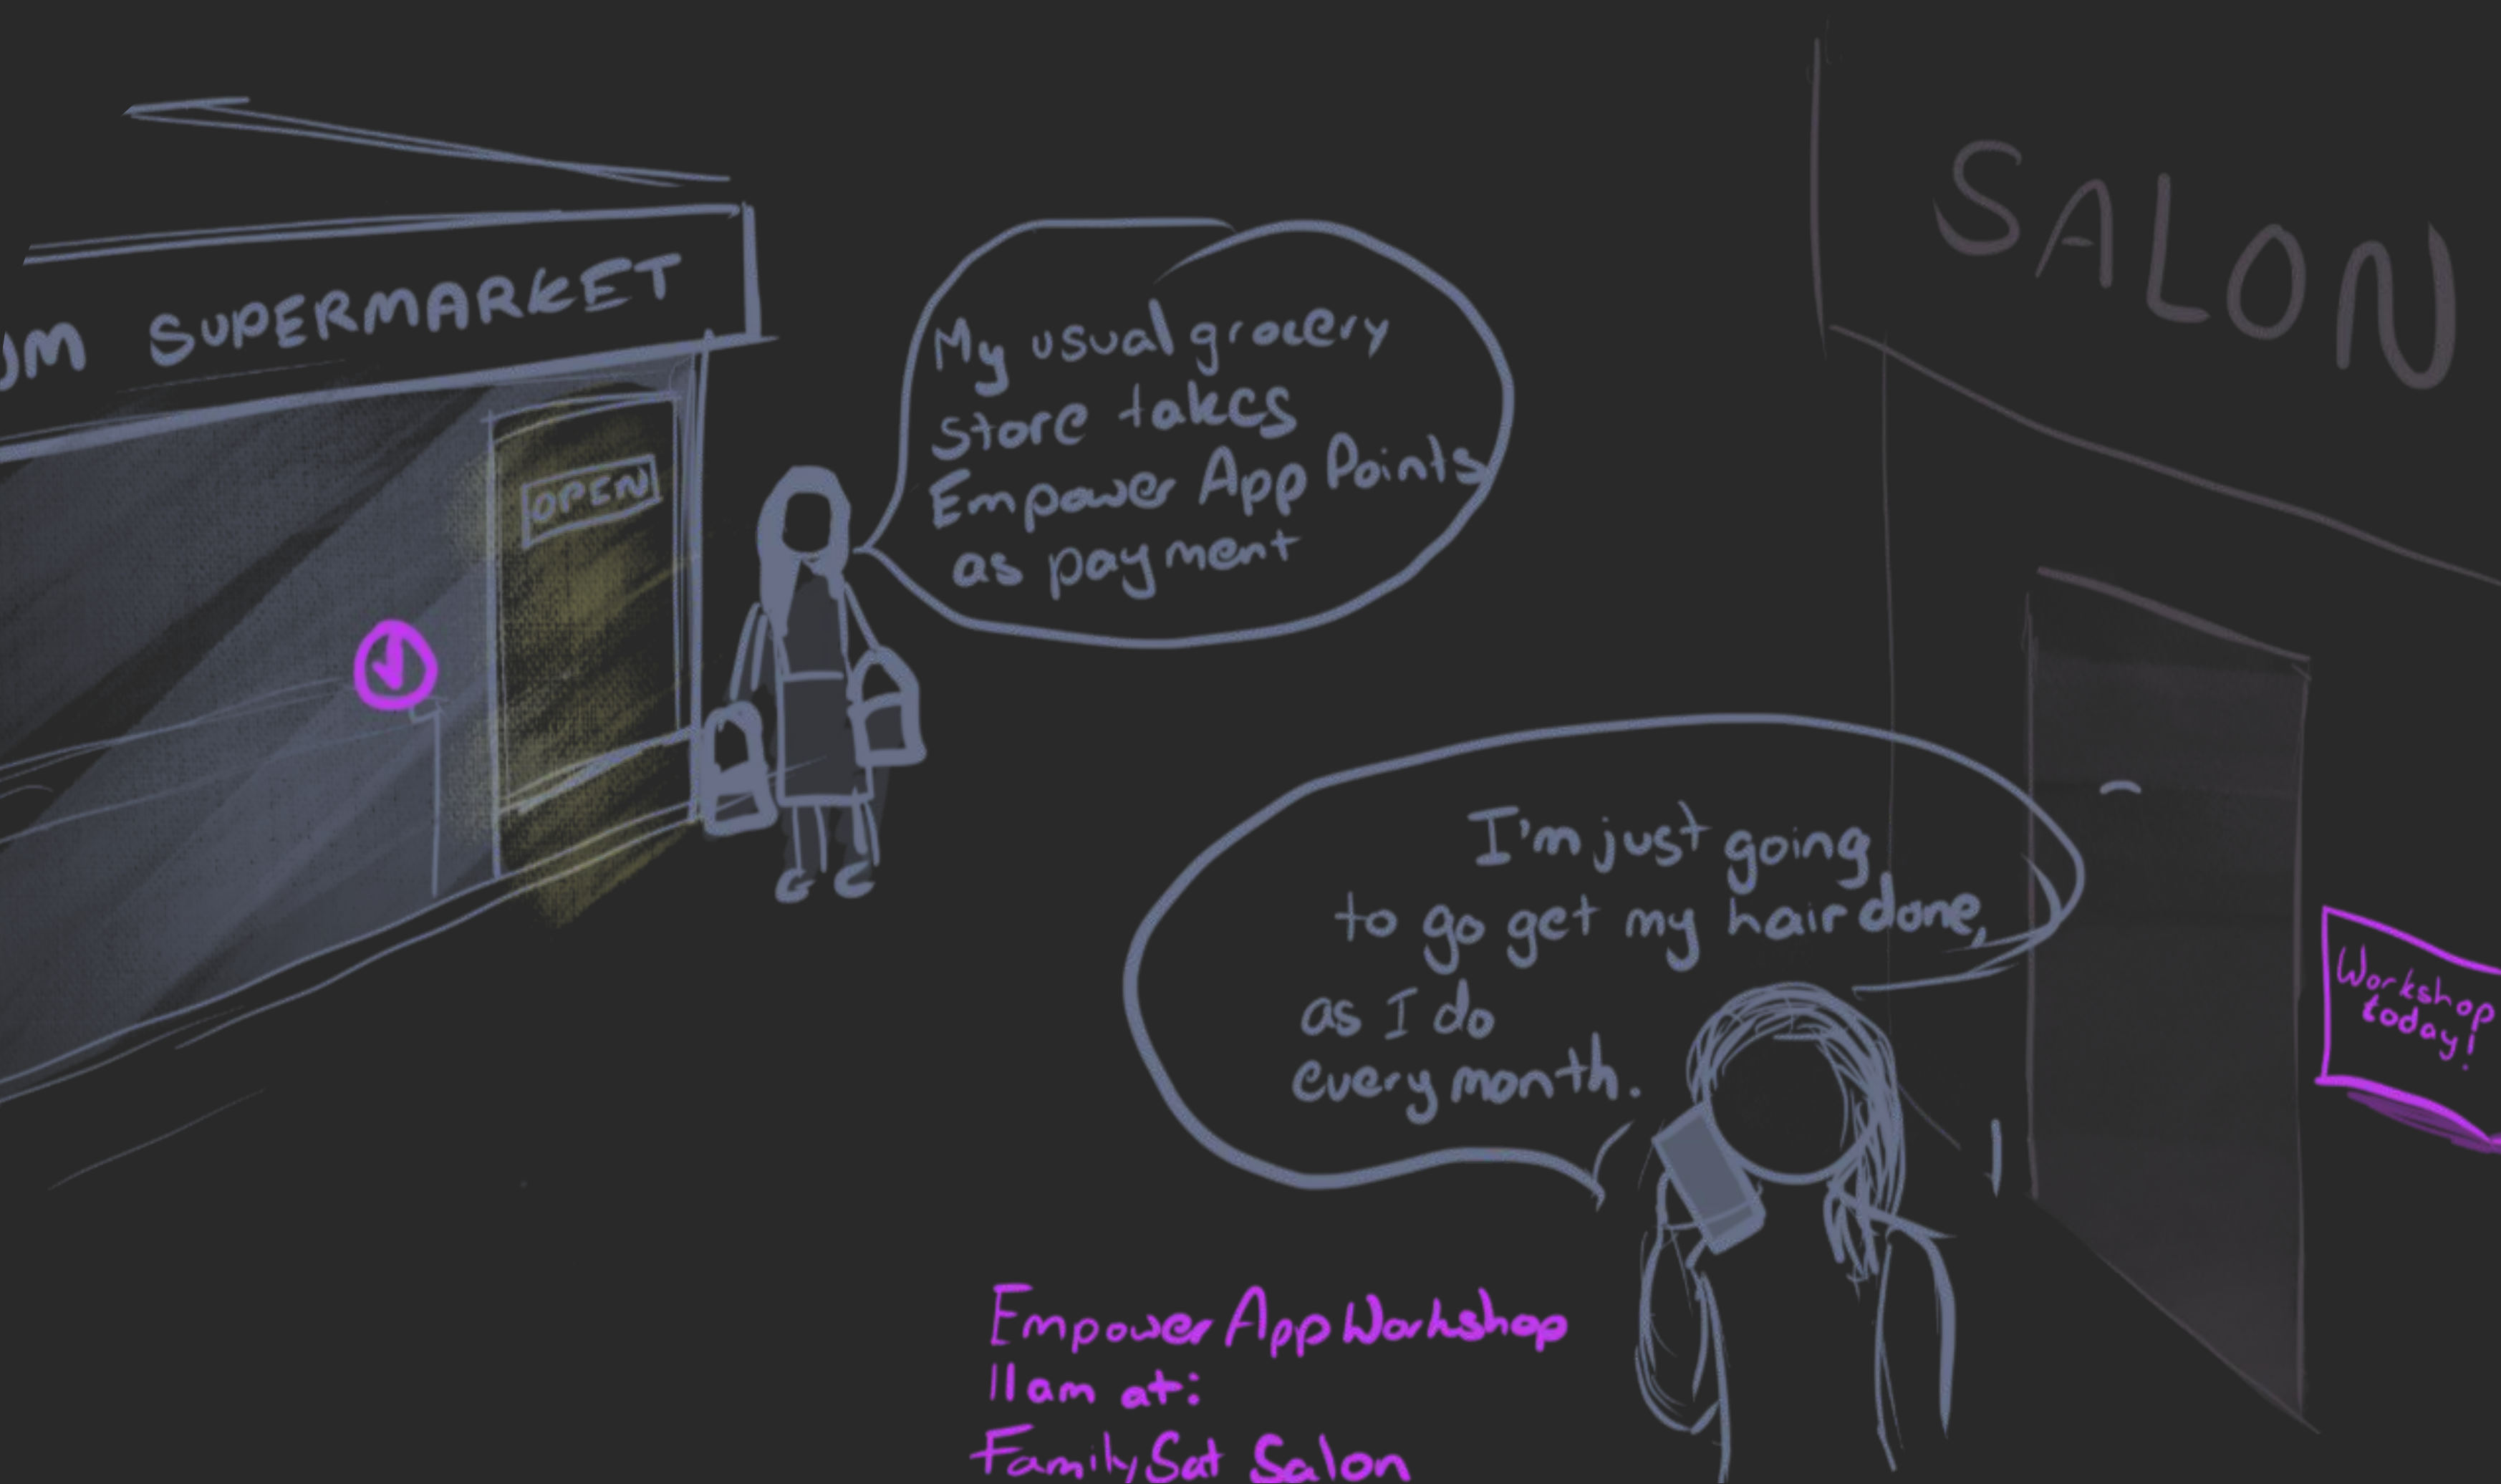 UM SUPERMARKET
OPEN
My usual grocery
store takes
Empower App Points
as payment
SALON
I'm just going
to go get my hair done,
as I do
every month.
Workshop
today!
Empower App Workshop
11am at:
Family Sat Salon